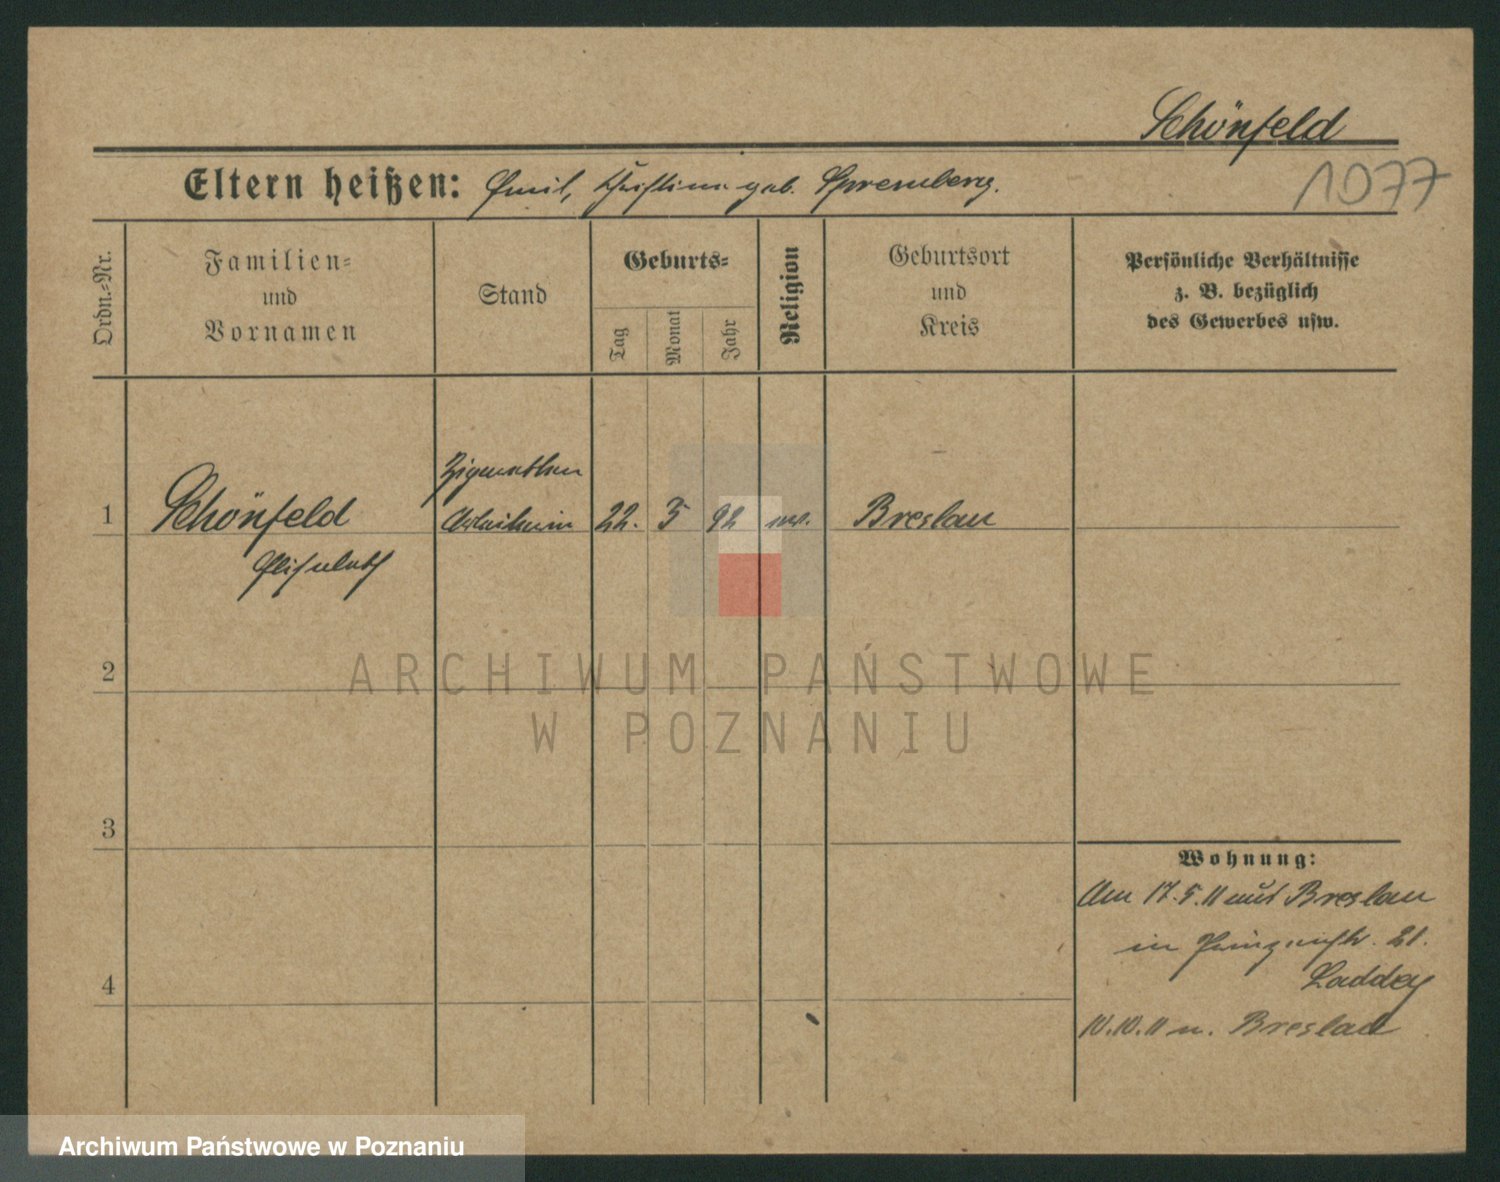 Schönfeld
1077
Eltern heißen: Emil, Christine geb. Spremberg.
Ordn.-Nr.
Familien-
und
Vornamen
Stand
Geburts-
Tag
Monat
Jahr
Religion
Geburtsort
und
Kreis
Persönliche Verhältnisse
z. B. bezüglich
des Gewerbes usw.
1
Schönfeld
Elisabeth
Zigaretten
Arbeiterin
22. 5 92 ev. Breslau
2
ARCHIWUM PAŃSTWOWE
W POZNANIU
3
4
Wohnung:
Am 17.5.11 aus Breslau
in Prinzenstr. 21.
Laddey
10.10.11 n. Breslau
Archiwum Państwowe w Poznaniu